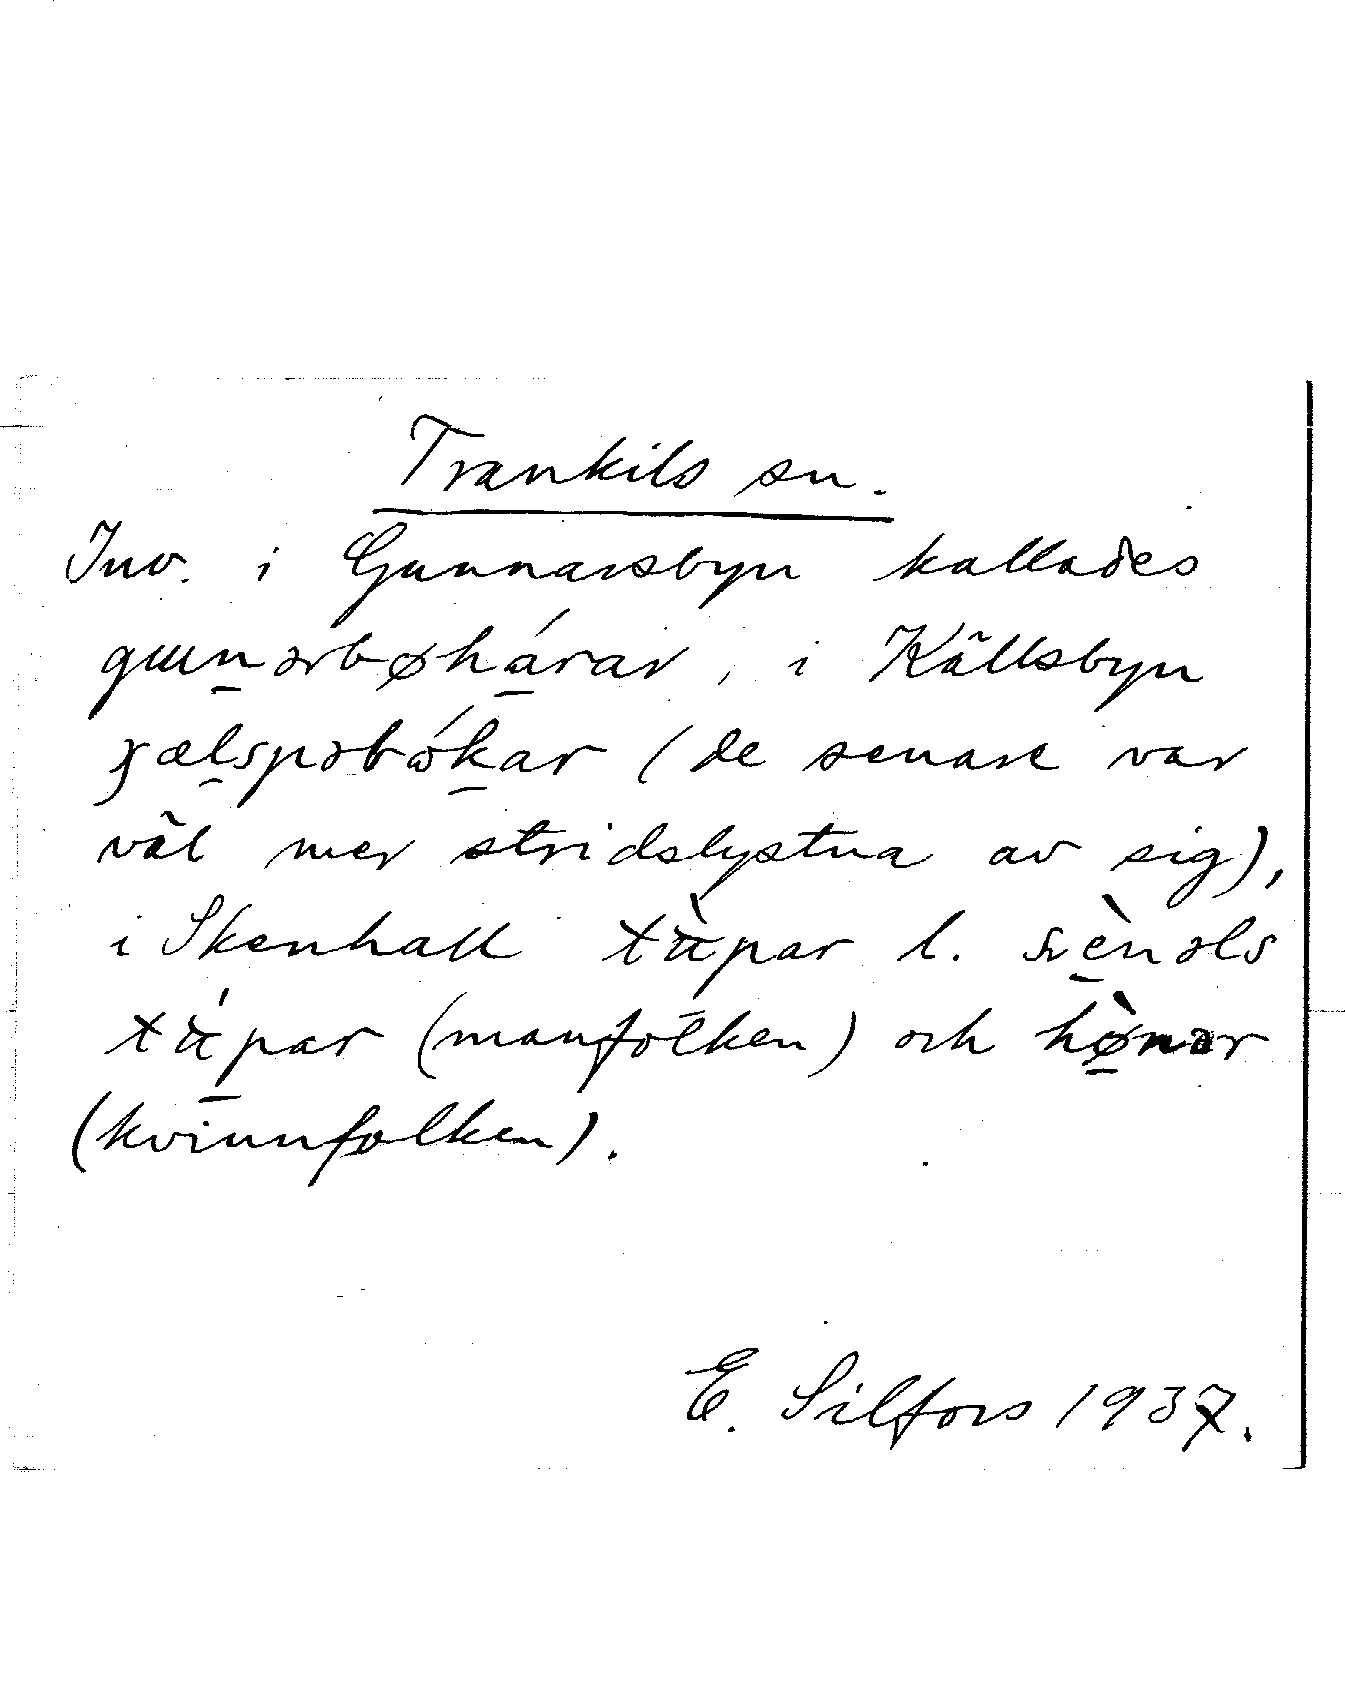 Trankils sn.
Inv. i Gunnarsbyn kallades
gɯnərbøhárar, i Källsbyn
ɟælspəbókar (de senare var
väl mer stridslystna av sig),
i Skenhall tùpar l. sènəls
túpar (manfolken) och hø̀nər
(kvinnfolken).
E. Silfors 1937.